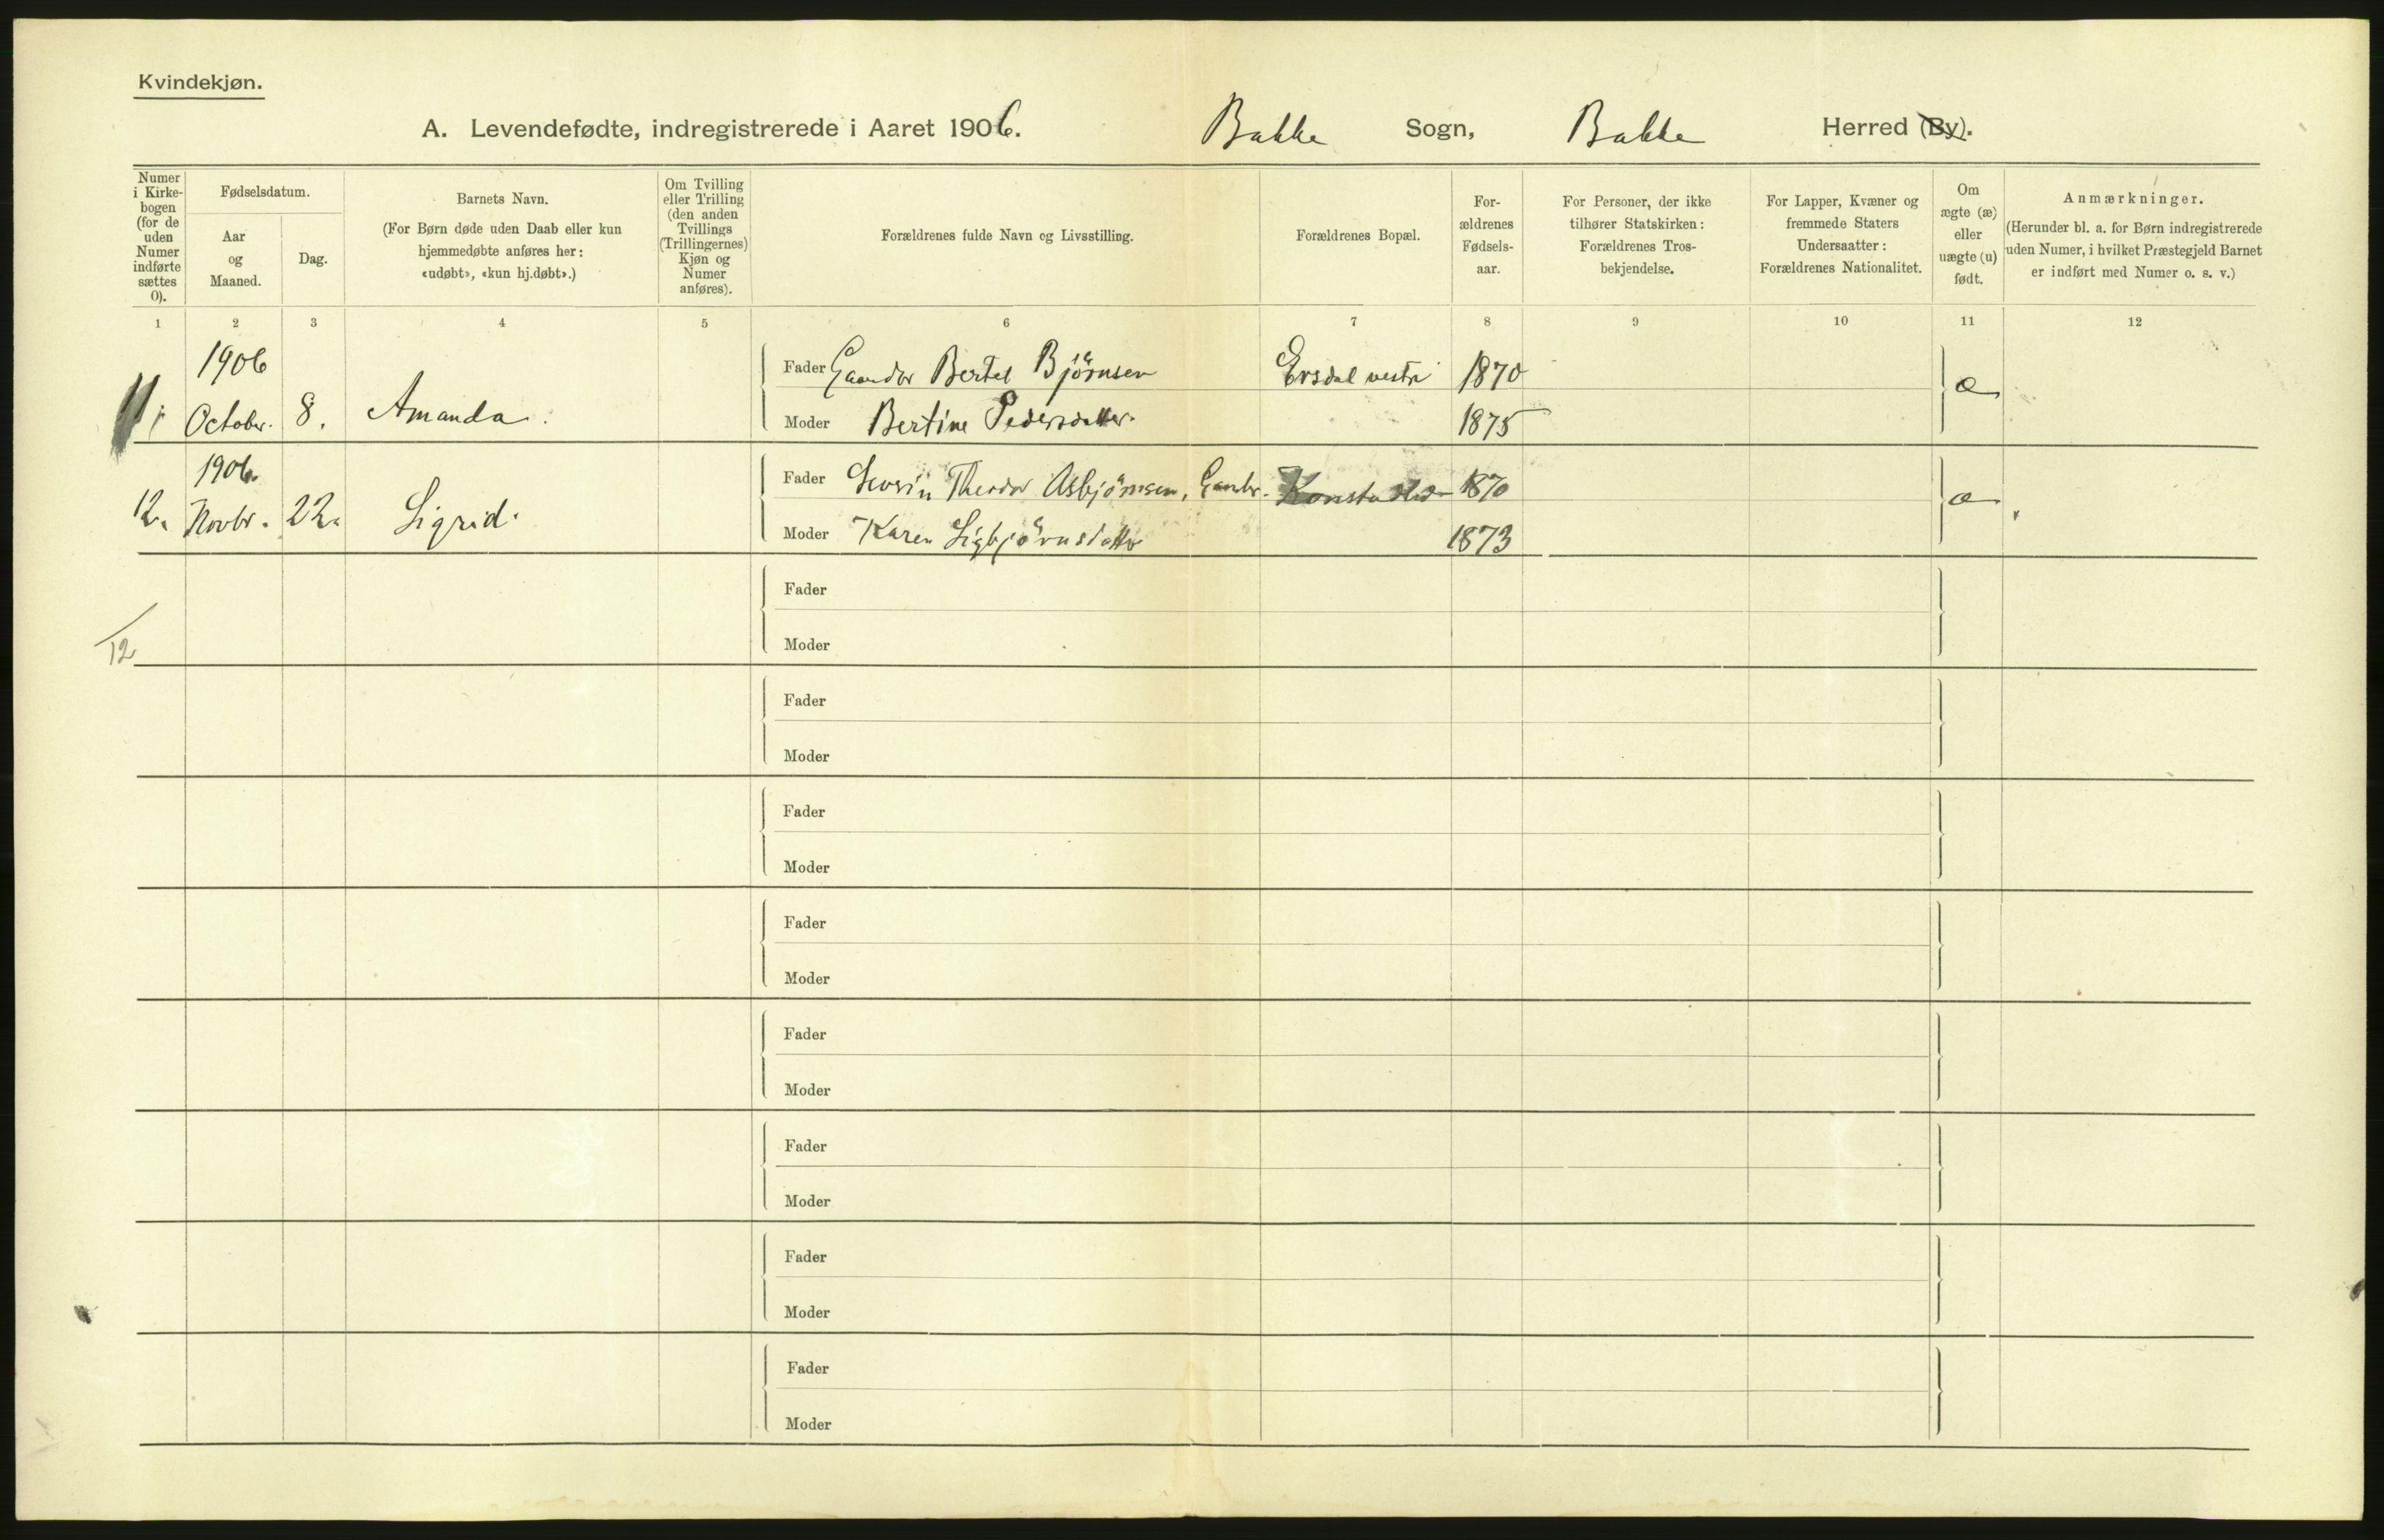 Kvindekjøn.
A. Levendefødte, indregistrerede i Aaret 1906. Bakke Sogn, Bakke Herred (By).
Numer i Kirkebogen (for de uden Numer indførte sættes 0).
Fødselsdatum.
Aar og Maaned.
Dag.
Barnets Navn.
(For Børn døde uden Daab eller kun hjemmedøbte anføres her: «udøbt», «kun hj.døbt».)
Om Tvilling eller Trilling (den anden Tvillings (Trillingernes) Kjøn og Numer anføres).
Forældrenes fulde Navn og Livsstilling.
Forældrenes Bopæl.
Forældrenes Fødselsaar.
For Personer, der ikke tilhører Statskirken: Forældrenes Trosbekjendelse.
For Lapper, Kvæner og fremmede Staters Undersaatter: Forældrenes Nationalitet.
Om ægte (æ) eller uægte (u) født.
Anmærkninger.
(Herunder bl. a. for Børn indregistrerede uden Numer, i hvilket Præstegjeld Barnet er indført med Numer o. s. v.)
1 2 3 4 5 6 7 8 9 10 11 12
1906
Fader Gaardbr Bertel Bjørnsen Ersdal vestre 1870 æ
11. October. 8. Amanda.
Moder Bertine Pedersdatter. 1875
1906.
Fader Severin Theodor Asbjørnsen, Gaardbr. 1870 æ
12. Novbr. 22. Sigrid.
Moder Karen Sigbjørnsdatter 1873
Fader
12
Moder
Fader
Moder
Fader
Moder
Fader
Moder
Fader
Moder
Fader
Moder
Fader
Moder
Fader
Moder